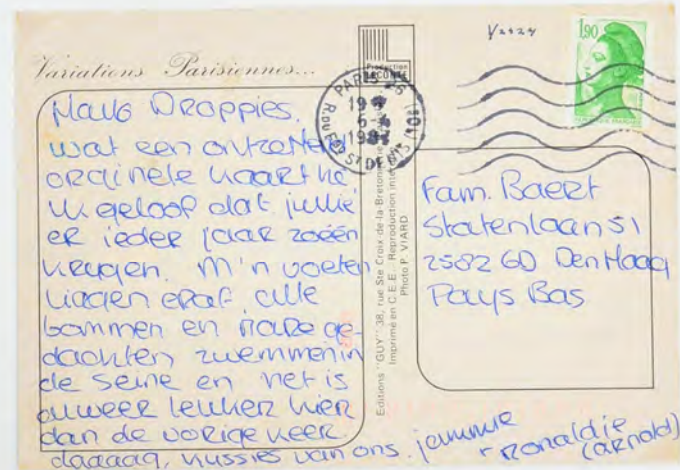 Variations Parisiennes...
Production
LECONTE
1,90
PARIS 26
R. DU FG ST DENIS (10E)
19 H
6 -
198
Hallo Droppies.
wat een ontzettend
ordinele kaart hè
Ik geloof dat jullie
er ieder jaar zoéén
krijgen. M'n voeten
liggen eraf, alle
bommen en rare ge-
dachten zwemmen in
de Seine en het is
alweer leuker hier
dan de vorige keer.
daaaag, kussies van ons. jemmie
+ Ronaldie
(arnold)
Editions "GUY" 38, rue Ste Croix-de-la-Bretonnerie
Imprimé en C.E.E. Reproduction inter
Photo P. VIARD
Fam. Baert
Statenlaan 51
2582 GD Den Haag
Pays Bas